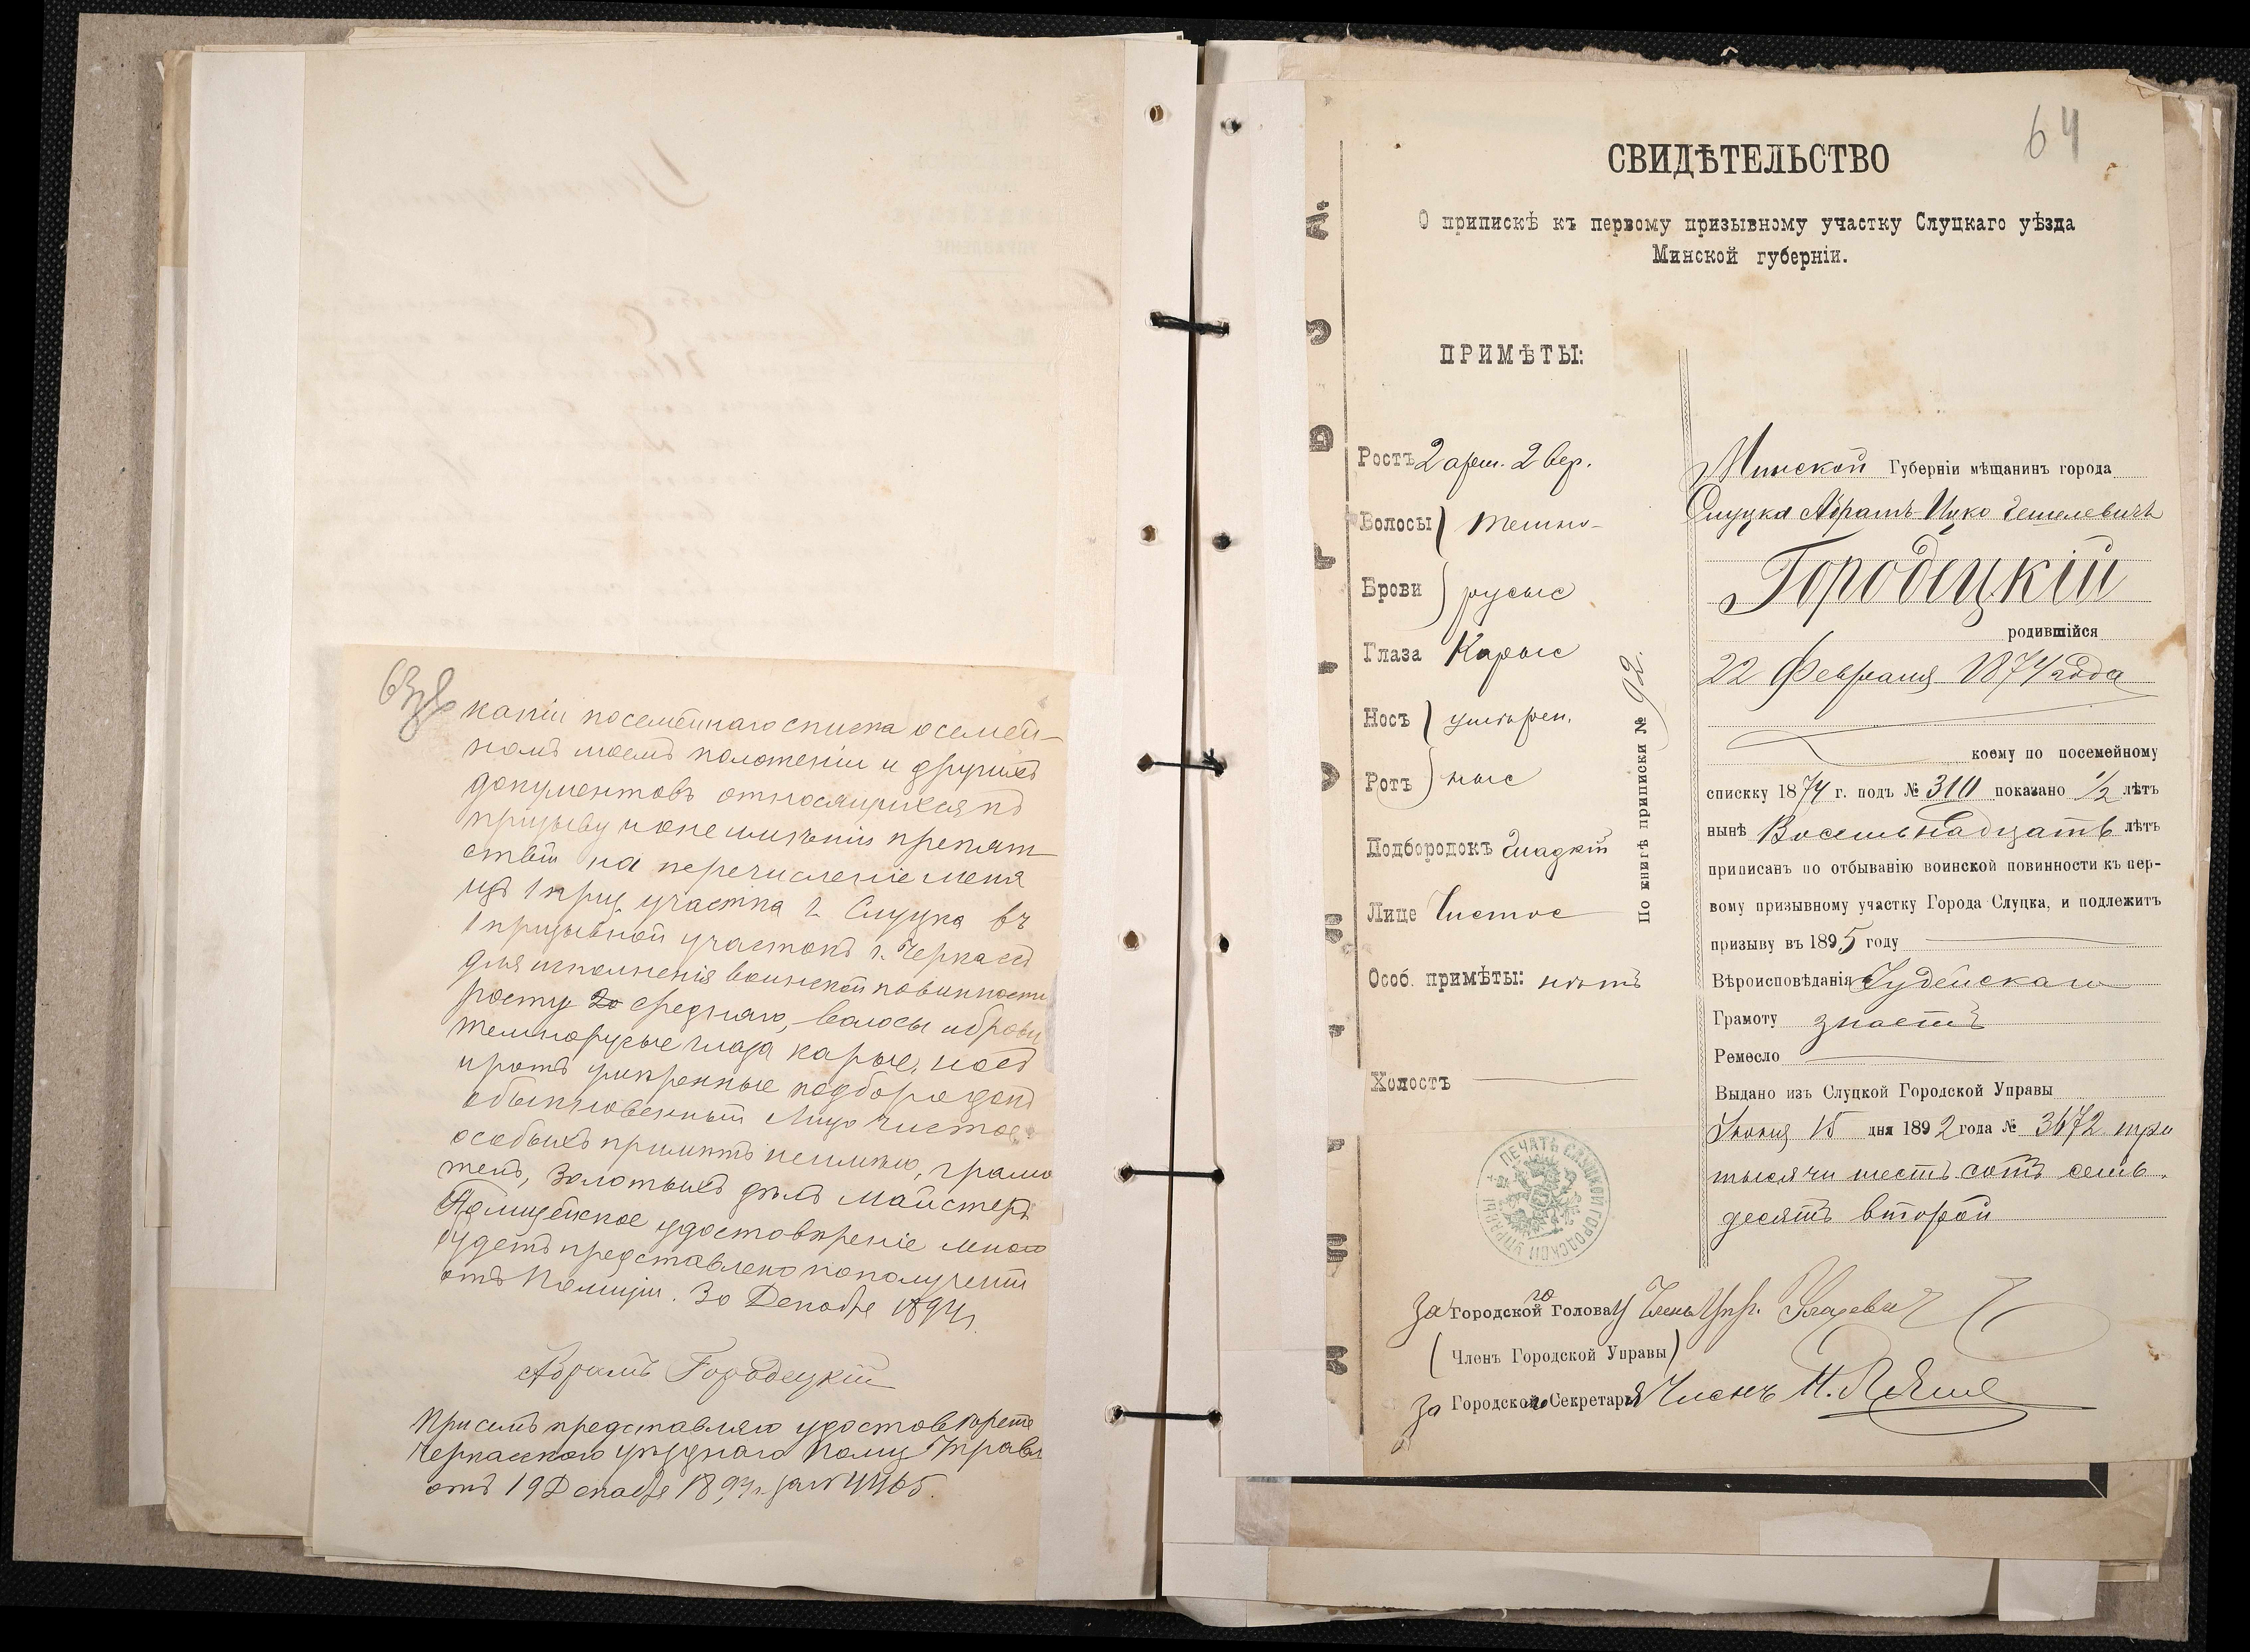 63об
копіи посемейнаго списка о семей-
номъ моемъ положеніи и другихъ
документовъ относящихся къ
призыву и о не имѣніи препят
ствій на перечисленіе меня
изъ 1 приз. участка г. Слуцка въ
1 призывной участокъ г. Черкассъ
для исполненія воинской повинности
росту средняго, волосы и брови
темнорусые глаза карые, носъ
и ротъ умѣренные подбородокъ
обыкновенный лицо чистое,
особыхъ примѣтъ не имѣю, грамо
тенъ, золотыхъ дѣлъ майстеръ
Полицейское удостовѣреніе мною
будетъ представлено по полученіи
отъ Полиціи. 30 Декабря 1894 г.
Абрамъ Городецкій
При семъ представляю удостовѣрете
Черкасского уѣзднаго Полиц Управл
отъ 19 Декабря 1894 г. за № 4465.
64
СВИДѢТЕЛЬСТВО
О припискѣ къ первому призывному участку Слуцкаго уѣзда
Минской губерніи.
ПРИМѢТЫ:
Ростъ 2 арш. 2 вер.
Волосы } темно-
Брови } русые
Глаза Карые
Носъ } умѣрен.
Ротъ } ные
Подбородокъ Гладкій
Лице Чистое
Особ. примѣты: нѣтъ
Холостъ
По книгѣ приписки № 92.
ПЕЧАТЬ СЛУЦКОЙ ГОРОДСКОЙ УПРАВЫ
Минской Губерніи мѣщанинъ города
Слуцка Абрамъ-Ицко Гешелевичъ
Городецкій
родившійся
22 Февраля 1874 года
коему по посемейному
спискку 1874 г. подъ № 310 показано 1/2 лѣтъ
нынѣ Восемьнадцать лѣтъ
приписанъ по отбыванію воинской повинности къ пер-
вому призывному участку Города Слуцка, и подлежитъ
призыву въ 1895 году
Вѣроисповѣданія Іудейскаго
Грамоту знаетъ
Ремесло
Выдано изъ Слуцкой Городской Управы
Іюня 15 дня 1892 года № 3672 три
тысячи шесть сотъ семь-
десятъ второй
За Городского Голову Членъ Упр.
(Членъ Городской Управы)
За Городского Секретаря Членъ Н.